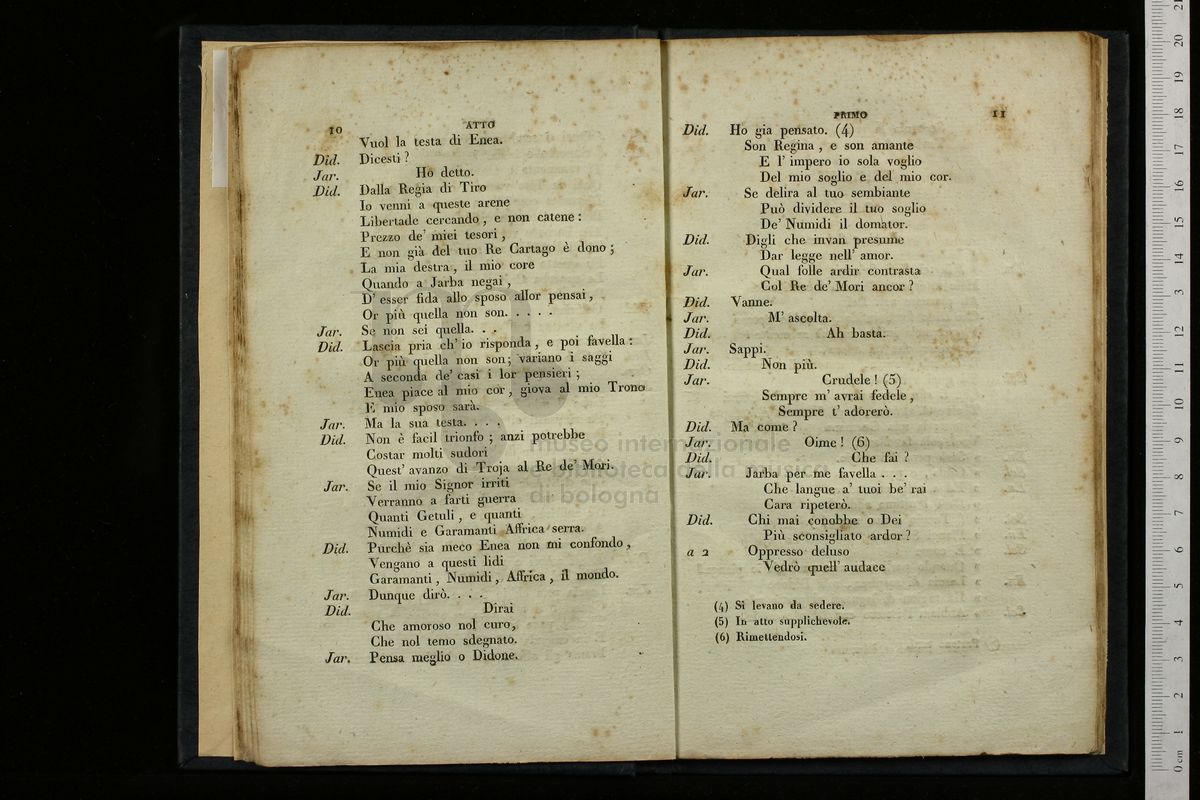 10
ATTO
Vuol la testa di Enea.
Did. Dicesti ?
Jar. Ho detto.
Did. Dalla Regia di Tiro
Io venni a queste arene
Libertade cercando , e non catene :
Prezzo de' miei tesori ,
E non già del tuo Re Cartago è dono ;
La mia destra , il mio core
Quando a Jarba negai ,
D' esser fida allo sposo allor pensai ,
Or più quella non son. . . . .
Jar. Se non sei quella. . .
Did. Lascia pria ch' io risponda , e poi favella :
Or più quella non son ; variano i saggi
A seconda de' casi i lor pensieri ;
Enea piace al mio cor , giova al mio Trono
E mio sposo sarà.
Jar. Ma la sua testa. . . .
Did. Non è facil trionfo ; anzi potrebbe
Costar molti sudori
Quest' avanzo di Troja al Re de' Mori.
Jar. Se il mio Signor irriti
Verranno a farti guerra
Quanti Getuli , e quanti
Numidi e Garamanti Affrica serra.
Did. Purchè sia meco Enea non mi confondo ,
Vengano a questi lidi
Garamanti , Numidi , Affrica , il mondo.
Jar. Dunque dirò. . . .
Did. Dirai
Che amoroso nol curo,
Che nol temo sdegnato.
Jar. Pensa meglio o Didone.
PRIMO
11
Did. Ho gia pensato. (4)
Son Regina , e son amante
E l' impero io sola voglio
Del mio soglio e del mio cor.
Jar. Se delira al tuo sembiante
Può dividere il tuo soglio
De' Numidi il domator.
Did. Digli che invan presume
Dar legge nell' amor.
Jar. Qual folle ardir contrasta
Col Re de' Mori ancor ?
Did. Vanne.
Jar. M' ascolta.
Did. Ah basta.
Jar. Sappi.
Did. Non più.
Jar. Crudele ! (5)
Sempre m' avrai fedele ,
Sempre t' adorerò.
Did. Ma come ?
Jar. Oime ! (6)
Did. Che fai ?
Jar. Jarba per me favella . . .
Che langue a' tuoi be' rai
Cara ripeterò.
Did. Chi mai conobbe o Dei
Più sconsigliato ardor ?
a 2 Oppresso deluso
Vedrò quell' audace
(4) Si levano da sedere.
(5) In atto supplichevole.
(6) Rimettendosi.
museo internazionale
e biblioteca della musica
di bologna
0 cm 1 2 3 4 5 6 7 8 9 10 11 12 13 14 15 16 17 18 19 20 21